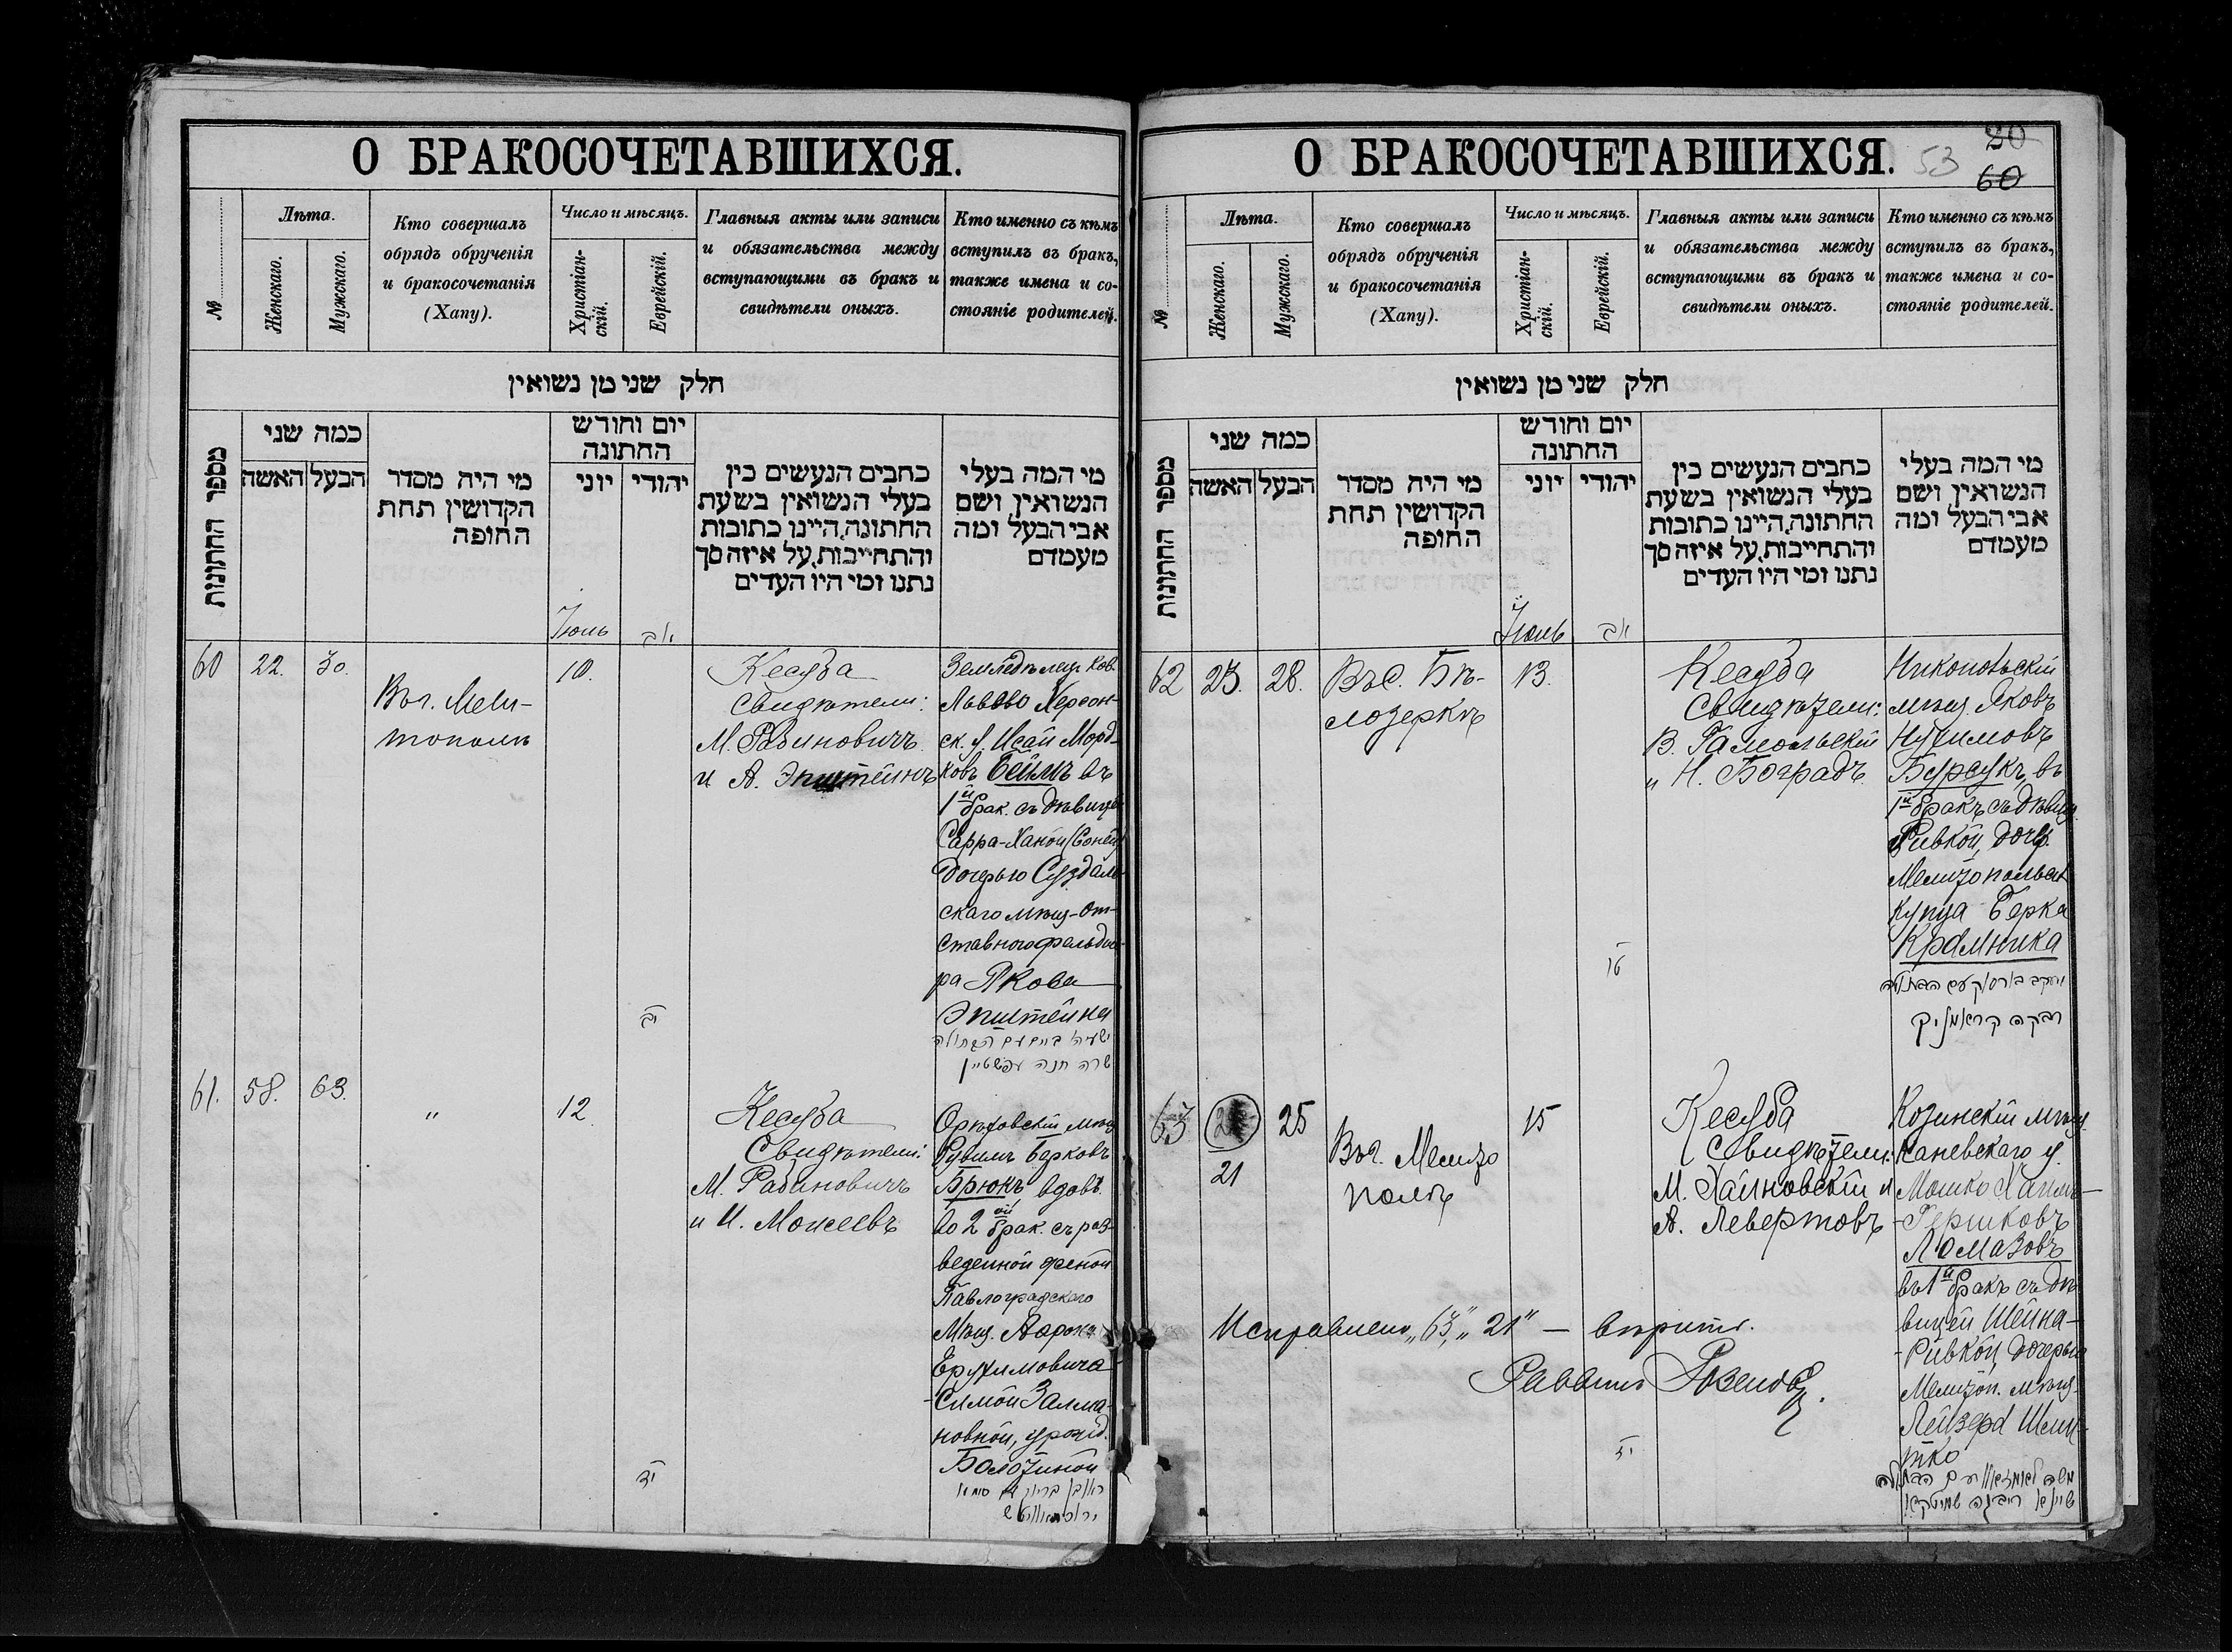 О БРАКОСОЧЕТАВШИХСЯ.
№
Лѣта.
Женскаго.
Мужскаго.
Кто совершалъ
обрядъ обрученія
и бракосочетанія
(Хапу).
Число и мѣсяцъ.
Христіан-
скій.
Еврейскій.
Главныя акты или записи
и обязательства между
вступающими въ бракъ и
свидѣтели оныхъ.
Кто именно съ кѣмъ
вступилъ въ бракъ,
также имена и со-
стояніе родителей.
חלק שני מן נשואין
מספר החתונות
כמה שני
האשה
הבעל
מי היה מסדר
הקדושין תחת
החופה
יום וחודש
החתונה
יוני
יהודי
כתבים הנעשים בין
בעלי הנשואין בשעת
החתונה, היינו כתובות
והתחייבות, על איזה סך
נתנו ומי היו העדים
מי המה בעלי
הנשואין ושם
אבי הבעל ומה
מעמדם
Іюль
אב
60
22.
30.
Въ г. Мели-
тополѣ
10.
יב
Кесуба
Свидѣтели:
М. Рабиновичъ
и А. Эпштейнъ
Земледѣлец. кол.
Львово Херсон-
ск. у. Исай Морд-
ковъ Беймъ въ
1й брак. съ дѣвицей
Сарра-Ханой (Соней)
дочерью Суздаль-
скаго мѣщ-от-
ставного фельдше-
ра Якова
Эпштейна
ישעיה ביים עם הבתולה
שרה חנה עפשטיין
61.
58.
63.
"
12.
יד
Кесуба
Свидѣтели:
М. Рабиновичъ
и И. Моисеевъ
Орѣховскій мѣщ.
Рувимъ Берковъ
Брюкъ вдовъ.
во 2ой брак. съ раз-
веденной женой
Павлоградскаго
Мѣщ. Аарона
Ерухимовича
-Симой Залма-
новной, урожд.
Болотиной
ראובן בריוק
О БРАКОСОЧЕТАВШИХСЯ.
53
20
60
№
Лѣта.
Женскаго.
Мужскаго.
Кто совершалъ
обрядъ обрученія
и бракосочетанія
(Хапу).
Число и мѣсяцъ.
Христіан-
скій.
Еврейскій.
Главныя акты или записи
и обязательства между
вступающими въ бракъ и
свидѣтели оныхъ.
Кто именно съ кѣмъ
вступилъ въ бракъ,
также имена и со-
стояніе родителей.
חלק שני מן נשואין
מספר החתונות
כמה שני
האשה
הבעל
מי היה מסדר
הקדושין תחת
החופה
יום וחודש
החתונה
יוני
יהודי
כתבים הנעשים בין
בעלי הנשואין בשעת
החתונה, היינו כתובות
והתחייבות, על איזה סך
נתנו ומי היו העדים
מי המה בעלי
הנשואין ושם
אבי הבעל ומה
מעמדם
Іюль
אב
62
23.
28.
Въ с. Бѣ-
лозеркѣ
13.
טו
Кесуба
Свидѣтели:
В. Гамольскій
и Н. Боградъ
Никопольскій
мѣщ. Яковъ
Нухимовъ
Бурсукъ, въ
1й бракъ съ дѣвиц.
Ривкой, дочер.
Мелитопольск.
купца Берка
Крамника
יעקב בורסוק עם הבתולה
רבקה קראמניק
63
21
25
Въ г. Мелито
полѣ
15
יז
Кесуба
Свидѣтели:
М. Хайновскій и
А. Левертовъ
Козинскій мѣщ.
Каневскаго у.
Мошко Хаим-
-Гершковъ
Ломазовъ
въ 1й бракъ съ дѣ
вицей Шейна-
-Ривкой, дочерью
Мелитоп. мѣщ.
Лейзера Шмы-
тко
משה לאמאזאוו עם הבתולה
שיינא ריבקה שמיטקא
Исправлено „63", „21" — вѣрить.
Раввинъ